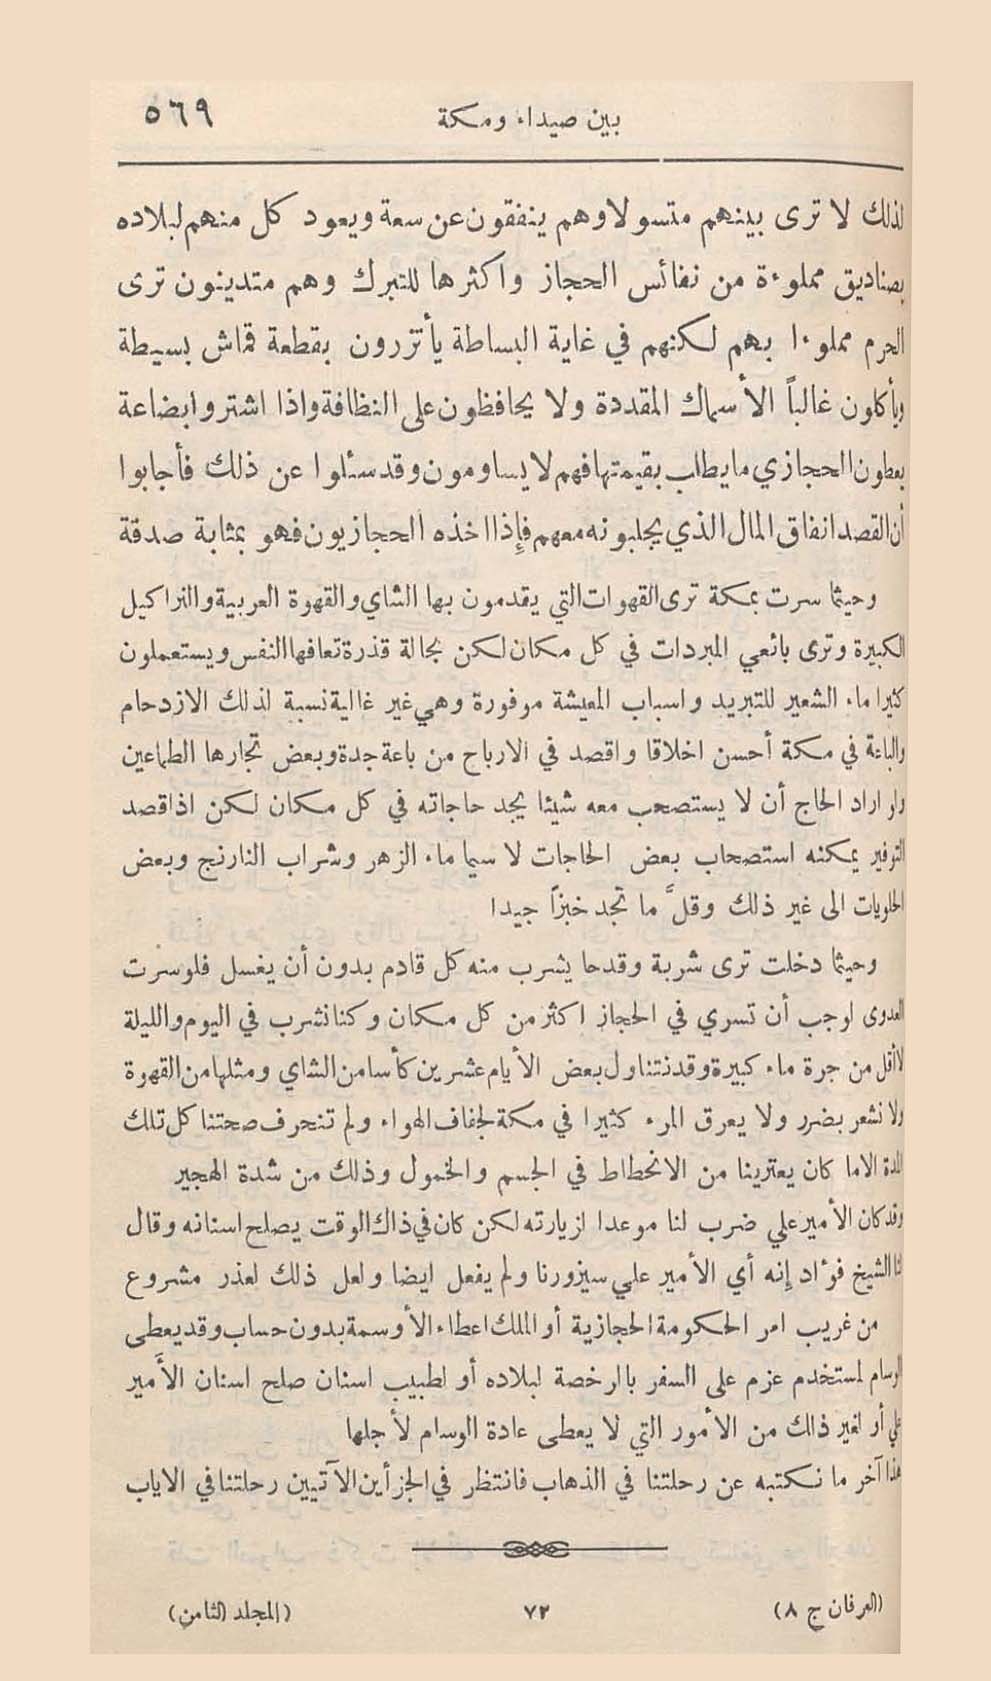 بين صيداء ومكة
٥٦٩
لذلك لا ترى بينهم متسولا وهم ينفقون عن سعة ويعود كل منهم لبلاده
بصناديق مملوءة من نفائس الحجاز واكثرها للتبرك وهم متدينون ترى
الحرم مملوءا بهم لكنهم في غاية البساطة يأتزرون بقطعة قماش بسيطة
ويأكلون غالباً الأسماك المقددة ولا يحافظون على النظافة واذا اشتروا بضاعة
يعطون الحجازي ما يطلب بقيمتها فهم لا يساومون وقد سئلوا عن ذلك فأجابوا
أن القصد انفاق المال الذي يجلبونه معهم فإذا اخذه الحجازيون فهو بمثابة صدقة
وحيثما سرت بمكة ترى القهوات التي يقدمون بها الشاي والقهوة العربية والنراكيل
الكبيرة وترى بائعي المبردات في كل مكان لكن بحالة قذرة تعافها النفس ويستعملون
كثيرا ماء الشعير للتبريد واسباب المعيشة موفورة وهي غير غالية نسبة لذلك الازدحام
والباعة في مكة أحسن اخلاقا واقصد في الارباح من باعة جدة وبعض تجارها الطماعين
ولو اراد الحاج أن لا يستصحب معه شيئا يجد حاجاته في كل مكان لكن اذا قصد
التوفير يمكنه استصحاب بعض الحاجات لا سيما ماء الزهر وشراب النارنج وبعض
الحلويات الى غير ذلك وقلَّ ما تجد خبزاً جيدا
وحيثما دخلت ترى شربة وقدحا يشرب منه كل قادم بدون أن يغسل فلو سرت
العدوى لوجب أن تسري في الحجاز اكثر من كل مكان وكنا نشرب في اليوم والليلة
لا أقل من جرة ماء كبيرة وقد نتناول بعض الأيام عشرين كأسا من الشاي ومثلها من القهوة
ولا نشعر بضرر ولا يعرق المرء كثيرا في مكة لجفاف الهواء ولم تنحرف صحتنا كل تلك
المدة الا ما كان يعترينا من الانحطاط في الجسم والخمول وذلك من شدة الهجير
وقد كان الأمير علي ضرب لنا موعدا لزيارته لكن كان في ذاك الوقت يصلح اسنانه وقال
لنا الشيخ فوءاد إنه أي الأمير علي سيزورنا ولم يفعل ايضا ولعل ذلك لعذر مشروع
من غريب امر الحكومة الحجازية أو الملك اعطاء الأوسمة بدون حساب وقد يعطى
الوسام لمستخدم عزم على السفر بالرخصة لبلاده أو لطبيب اسنان صلح اسنان الأمير
علي أو لغير ذلك من الأمور التي لا يعطى عادة الوسام لأجلها
هذا آخر ما نكتبه عن رحلتنا في الذهاب فانتظر في الجزأين الآتيين رحلتنا في الاياب
(العرفان ج ٨)
٧٢
(المجلد الثامن)